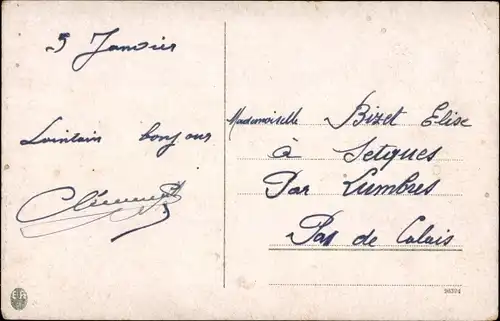 5 Janvier
Lointain bonjour
Clément
Mademoiselle Bizet Elise
à Setques
Par Lumbres
Pas de Calais